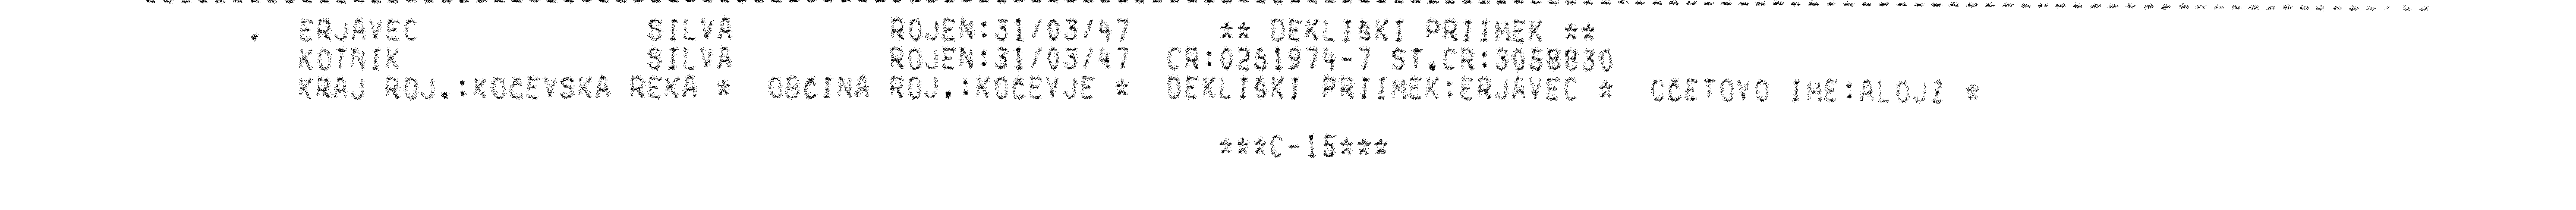 . ERJAVEC SILVA ROJEN:31/03/47 ** DEKLIŠKI PRIIMEK **
KOTNIK SILVA ROJEN:31/03/47 CR:0261974-7 ST.CR:3058830
KRAJ ROJ.:KOČEVSKA REKA * OBČINA ROJ.:KOČEVJE * DEKLIŠKI PRIIMEK:ERJAVEC * OČETOVO IME:ALOJZ *
***C-15***